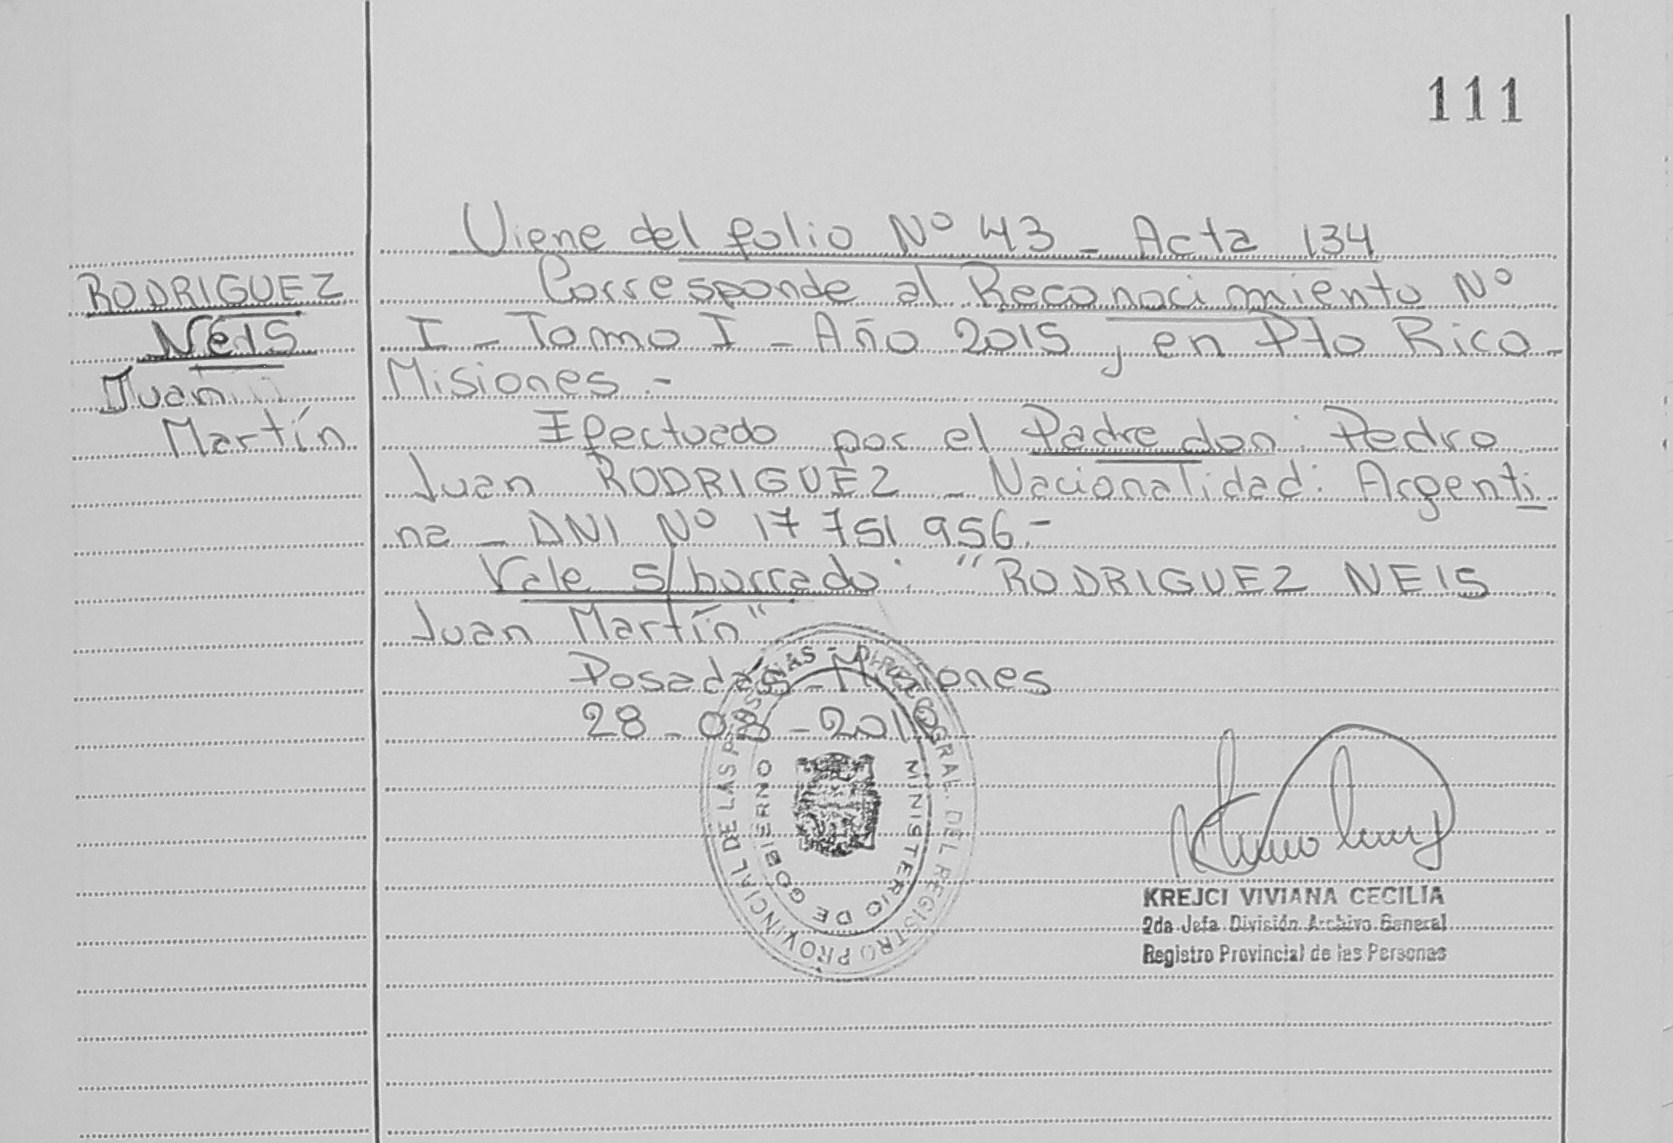 111
Viene del folio Nº 43 - Acta 134
RODRIGUEZ
NEIS
Juan
Martín
Corresponde al Reconocimiento Nº
I - Tomo I - Año 2015, en Pto Rico -
Misiones.-
Efectuado por el Padre don: Pedro
Juan RODRIGUEZ - Nacionalidad: Argenti
na - DNI Nº 17 751 956.-
Vale s/borrado: "RODRIGUEZ NEIS
Juan Martín"
Posadas - Misiones
28 - 08 -
DIREC. GRAL. DEL REGISTRO PROVINCIAL DE LAS PERSONAS -
MINISTERIO DE GOBIERNO
KREJCI VIVIANA CECILIA
2da Jefa División Archivo General
Registro Provincial de las Personas